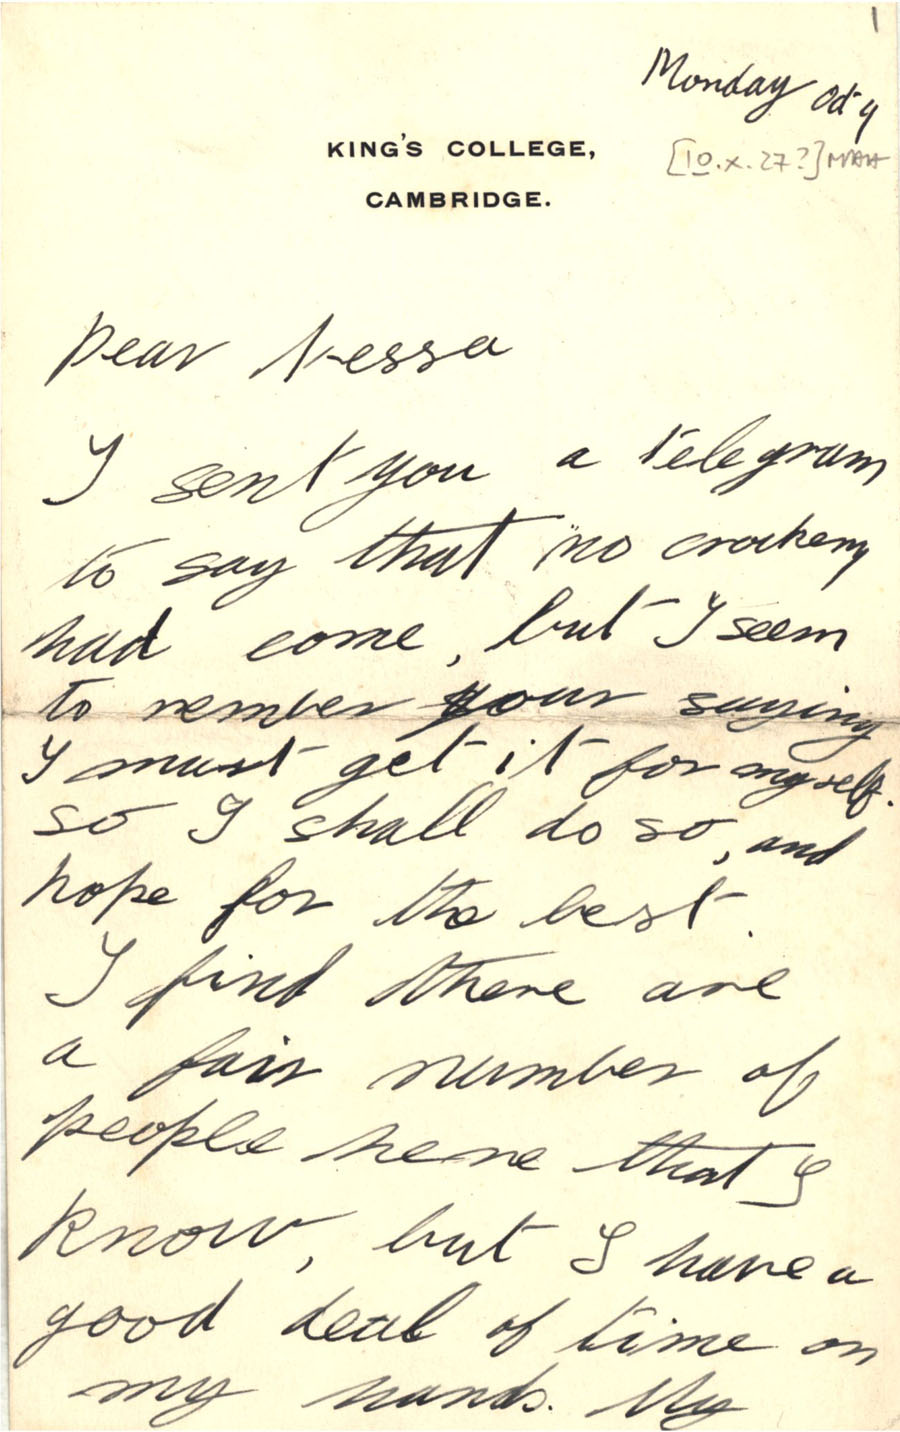 1
Monday Oct 9
KING'S COLLEGE,
[10.x.27?]
CAMBRIDGE.
Dear Nessa
I sent you a telegram
to say that no crockery
had come, but I seem
to rember your saying
I must get it for myself.
so I shall do so, and
hope for the best.
I find there are
a fair number of
people here that I
know, but I have a
good deal of time on
my hands. My